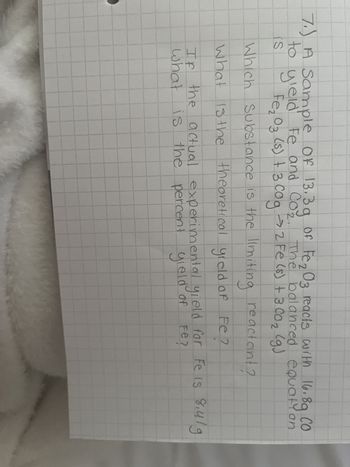 7.) A Sample of 13.3g of Fe₂O₃ reacts with 16.8g CO
to yield Fe and CO₂. The balanced equation
is Fe₂O₃ (s) + 3 COg → 2 Fe (s) + 3 CO₂ (g)
Which Substance is the limiting reactant?
What is the theoretical yield of Fe?
If the actual experimental yield for Fe is 8.41g
What is the percent yield of Fe?